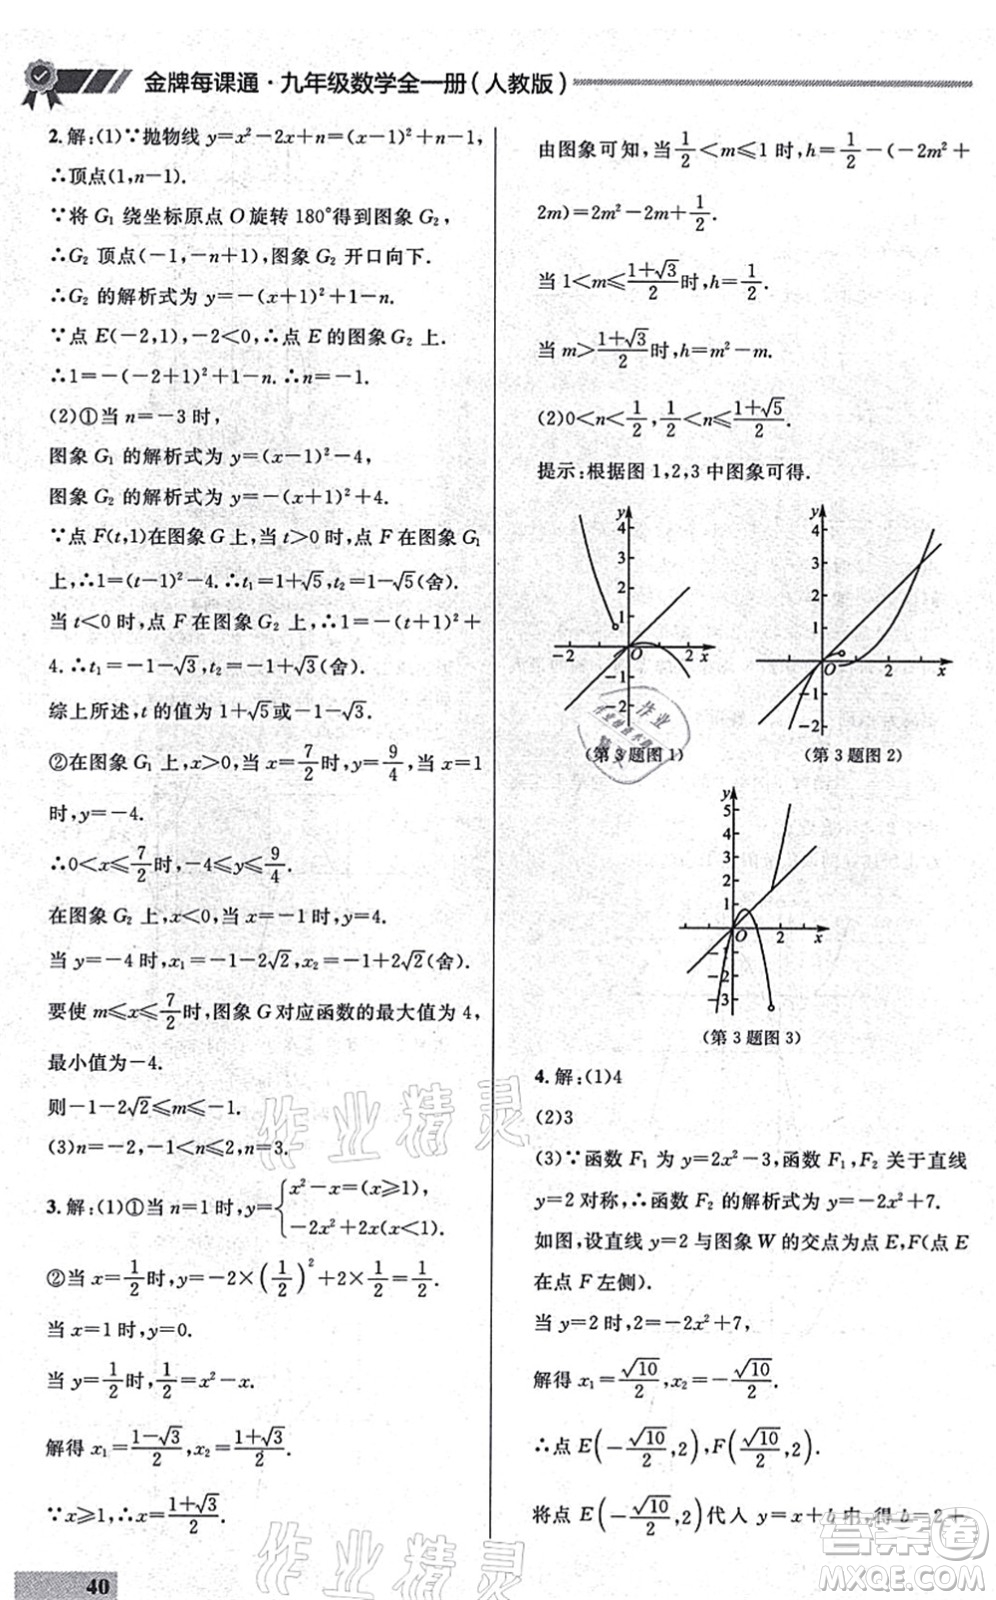 金牌每课通·九年级数学全一册(人教版)
2.解:(1)∵抛物线 y=x²-2x+n=(x-1)²+n-1,
∴顶点(1,n-1).
∵将 G₁ 绕坐标原点 O 旋转 180°得到图象 G₂,
∴G₂ 顶点(-1,-n+1),图象 G₂ 开口向下.
∴G₂ 的解析式为 y=-(x+1)²+1-n.
∵点 E(-2,1),-2<0,∴点 E 的图象 G₂ 上.
∴1=-(-2+1)²+1-n.∴n=-1.
(2)①当 n=-3 时,
图象 G₁ 的解析式为 y=(x-1)²-4,
图象 G₂ 的解析式为 y=-(x+1)²+4.
∵点 F(t,1)在图象 G 上,当 t>0 时,点 F 在图象 G₁
上,∴1=(t-1)²-4.∴t₁=1+√5,t₂=1-√5(舍).
当 t<0 时,点 F 在图象 G₂ 上,∴1=-(t+1)²+
4.∴t₁=-1-√3,t₂=-1+√3(舍).
综上所述,t 的值为 1+√5或-1-√3.
②在图象 G₁ 上,x>0,当 x=7/2时,y=9/4,当 x=1
时,y=-4.
∴0<x≤7/2时,-4≤y≤9/4.
在图象 G₂ 上,x<0,当 x=-1 时,y=4.
当 y=-4 时,x₁=-1-2√2,x₂=-1+2√2(舍).
要使 m≤x≤7/2时,图象 G 对应函数的最大值为 4,
最小值为-4.
则-1-2√2≤m≤-1.
(3)n=-2,-1<n≤2,n=3.
3.解:(1)①当 n=1 时,y={x²-x=(x≥1),
-2x²+2x(x<1).
②当 x=1/2时,y=-2×(1/2)²+2×1/2=1/2.
当 x=1 时,y=0.
当 y=1/2时,1/2=x²-x.
解得 x₁=(1-√3)/2,x₂=(1+√3)/2.
∵x≥1,∴x=(1+√3)/2.
40
由图象可知,当1/2<m≤1 时,h=1/2-(-2m²+
2m)=2m²-2m+1/2.
当 1<m≤(1+√3)/2时,h=1/2.
当 m>(1+√3)/2时,h=m²-m.
(2)0<n<1/2,1/2<n≤(1+√5)/2.
提示:根据图 1,2,3 中图象可得.
y
4
3
2
1
-2
O
2
x
-1
-2
(第 3 题图 1)
y
4
3
2
1
O
2
x
-1
-2
(第 3 题图 2)
y
5
4
3
2
1
O
2
x
-1
-2
-3
(第 3 题图 3)
4.解:(1)4
(2)3
(3)∵函数 F₁ 为 y=2x²-3,函数 F₁,F₂ 关于直线
y=2 对称,∴函数 F₂ 的解析式为 y=-2x²+7.
如图,设直线 y=2 与图象 W 的交点为点 E,F(点 E
在点 F 左侧).
当 y=2 时,2=-2x²+7,
解得 x₁=√10/2,x₂=-√10/2.
∴点 E(-√10/2,2),F(√10/2,2).
将点 E(-√10/2,2)代入 y=x+b 中,得 b=2+
作业精灵
作业精灵
答案圈
MXQE.COM